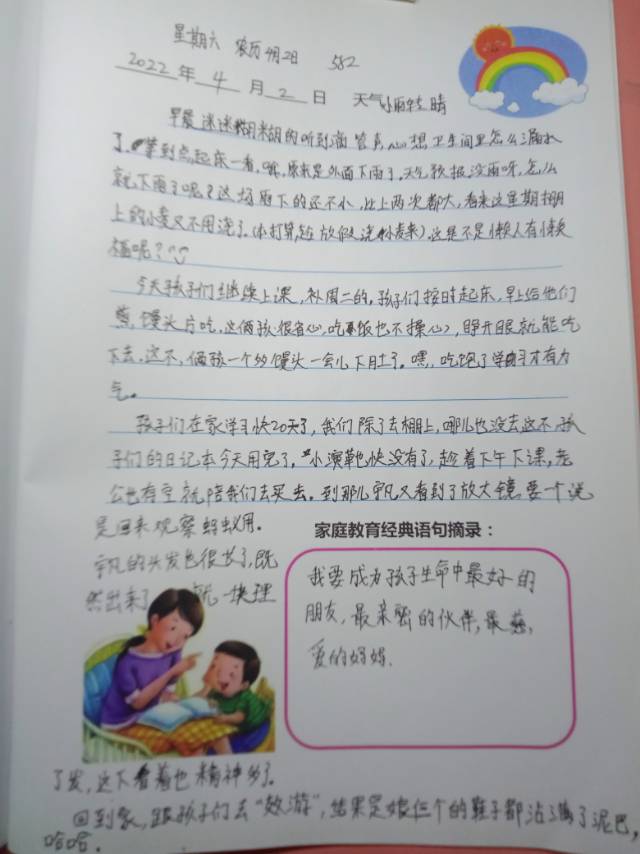 星期六 农历3月2日 582
2022年4月2日 天气 小雨转晴
早晨迷迷糊糊的听到滴管声,心想卫生间里怎么漏水
了。等到点起床一看,呀,原来是外面下雨了,天气预报没雨呀,怎么
就下雨了呢?这场雨下的还不小,比上两次都大,看来这星期棚
上的小麦又不用浇了。(本打算趁放假浇小麦来)这是不是懒人有懒
福呢?
今天孩子们继续上课,补周二的。孩子们按时起床,早上给他们
煎馒头片吃,这俩孩很省心,吃饭也不操心,睁开眼就能吃
下去。这不,俩孩一个多馒头一会儿下肚了。嘿,吃饱了学习才有力
气。
孩子们在家学习快20天了,我们除了去棚上,哪儿也没去这不,孩
子们的日记本今天用完了,小演草也快没有了,趁着下午下课,老
公也有空就陪我们去买去。到那儿宇凡又看到了放大镜,要一个说
是回来观察蚂蚁用。
宇凡的头发也很长了,既
然出来了 就一块理
了发,这下看着也精神多了。
回到家,跟孩子们去“效游”,结果是娘仨个的鞋子都沾满了泥巴,
哈哈。
家庭教育经典语句摘录:
我要成为孩子生命中最好的
朋友,最亲密的伙伴,最慈
爱的妈妈.